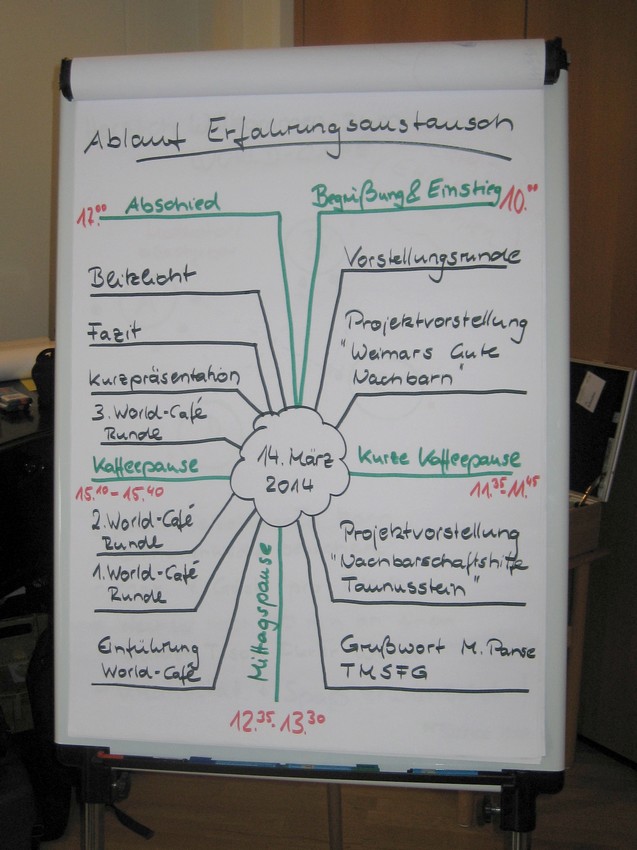 Ablauf Erfahrungsaustausch
Begrüßung & Einstieg 10.00
Vorstellungsrunde
Projektvorstellung
"Weimars Gute
Nachbarn"
Kurze Kaffeepause
11.35-11.45
Projektvorstellung
"Nachbarschaftshilfe
Taunusstein"
Grußwort M. Panse
TMSFG
Mittagspause
12.35-13.30
Einführung
World-Café
1. World-Café
Runde
2. World-Café
Runde
Kaffeepause
15.10-15.40
3. World-Café
Runde
Kurzpräsentation
Fazit
Blitzlicht
17.00 Abschied
14. März
2014